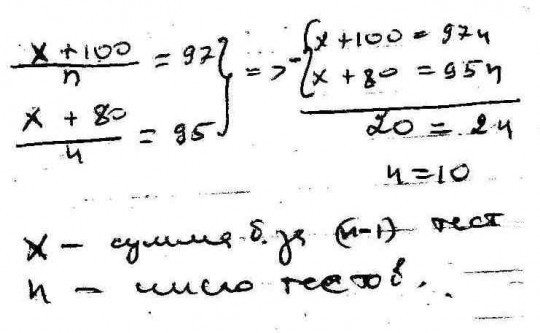 x + 100 / n = 97 } => - { x + 100 = 97n
x + 80 / n = 95 } { x + 80 = 95n
20 = 2n
n = 10
x — сумма б. за (n-1) тест
n — число тестов.